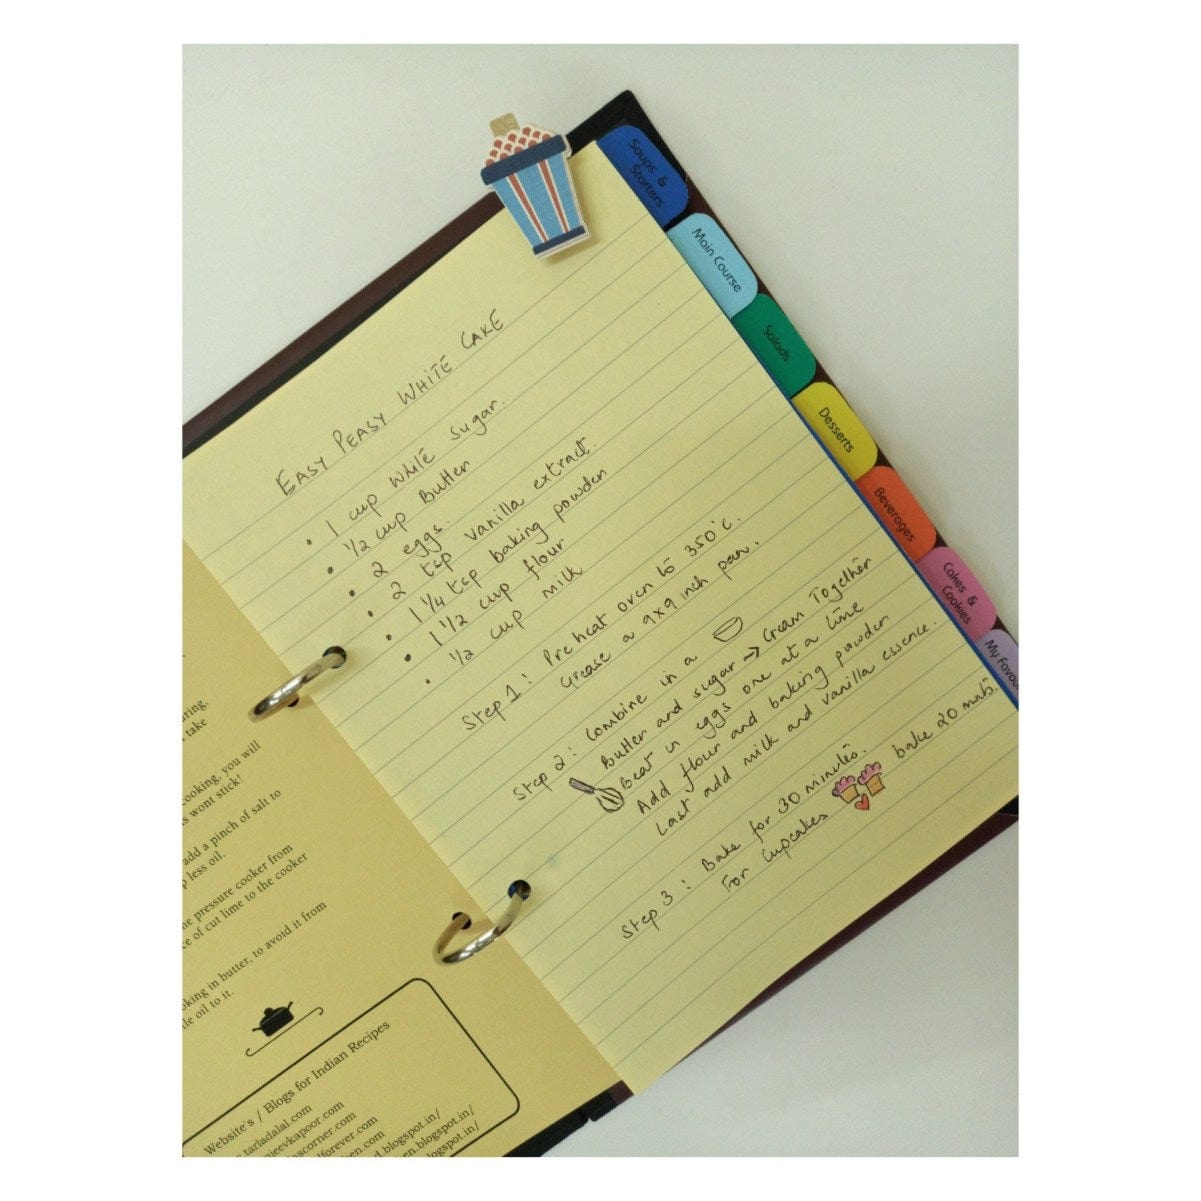 Soups &
Starters
Main Course
Salads
Desserts
Beverages
Cakes &
Cookies
My Favou
EASY PEASY WHITE CAKE
• 1 cup white sugar.
• 1/2 cup Butter
• 2 eggs.
• 2 tsp vanilla extract.
• 1 1/4 tsp baking powder
• 1 1/2 cup flour
• 1/2 cup milk
Step 1: Preheat oven to 350°C.
Grease a 9x9 inch pan.
Step 2: Combine in a
Butter and sugar → Cream Together
Beat in eggs one at a time
Add flour and baking powder
Last add milk and vanilla essence.
Step 3: Bake for 30 minutes.
For Cupcakes bake 20 mnts.
uring,
take
cooking, you will
s wont stick!
add a pinch of salt to
p less oil.
ne pressure cooker from
ce of cut lime to the cooker
oking in butter, to avoid it from
tle oil to it.
Website's / Blogs for Indian Recipes
w.tarladalal.com
jeevkapoor.com
ascorner.com
lforever.com
en.com
d.blogspot.in/
en.blogspot.in/
.blogspot.in/